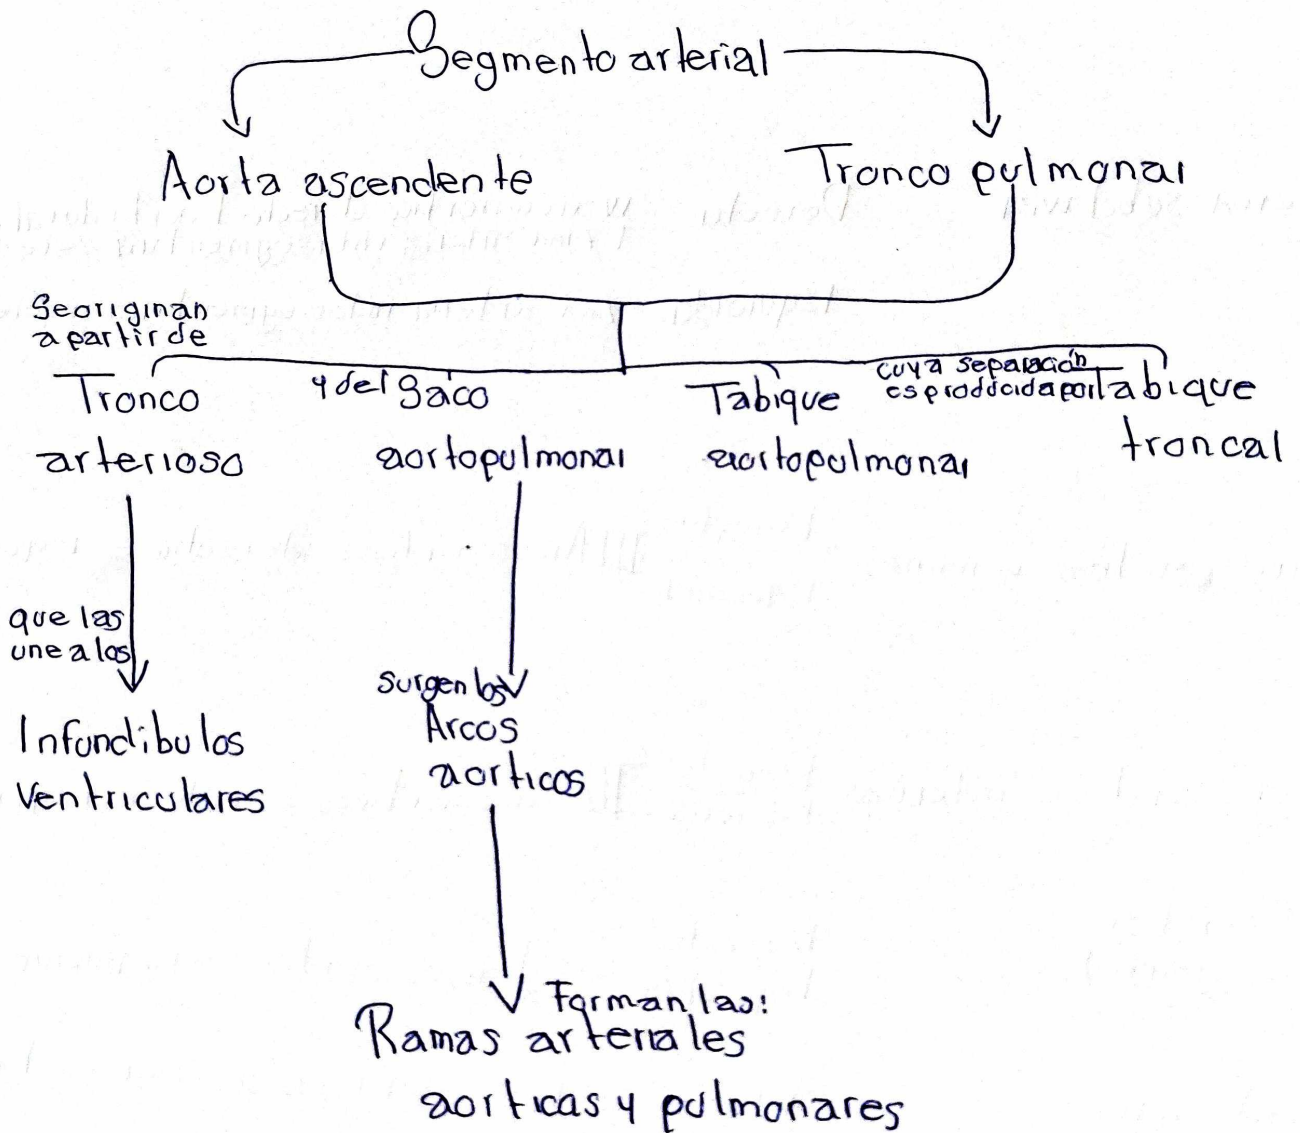 Segmento arterial
Aorta ascendente
Tronco pulmonar
Se originan
a partir de
Tronco
arterioso
y del Saco
aortopulmonar
Tabique
aortopulmonar
cuya separación
es producida por
Tabique
troncal
que las
une a los
Infundibulos
Ventriculares
surgen los
Arcos
aorticos
Forman las:
Ramas arteriales
aorticas y pulmonares